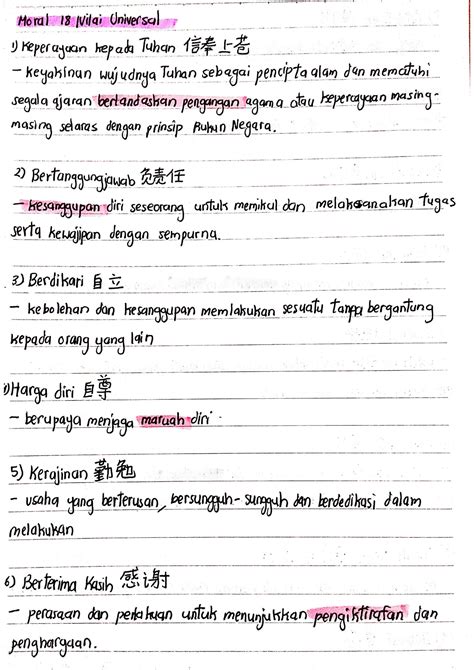 Moral 18 Nilai Universal
1) Kepercayaan kepada Tuhan 信奉上苍
- Keyakinan wujudnya Tuhan sebagai pencipta alam dan mematuhi
segala ajaran berlandaskan pengangan agama atau kepercayaan masing-
masing selaras dengan prinsip Rukun Negara.
2) Bertanggungjawab 负责任
- kesanggupan diri seseorang untuk memikul dan melaksanakan tugas
serta kewajipan dengan sempurna.
3) Berdikari 自立
- kebolehan dan kesanggupan memlakukan sesuatu tanpa bergantung
kepada orang yang lain
)Harga diri 自尊
- berupaya menjaga maruah diri.
5) Kerajinan 勤勉
- usaha yang berterusan, bersungguh-sungguh dan berdedikasi dalam
melakukan
6) Berterima Kasih 感谢
- perasaan dan perlakuan untuk menunjukkan pengiktirafan dan
penghargaan.